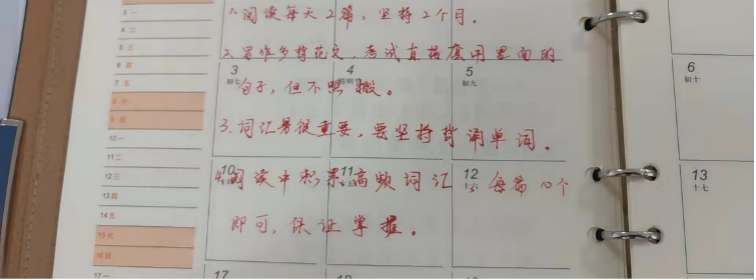 1.阅读每天2篇，坚持2个月。
2.写作多背范文，考试直接套用里面的
句子，但不照搬。
3.词汇量很重要，要坚持背诵单词。
4.阅读中积累高频词汇，每篇10个
即可，保证掌握。
3一
4二
5三
6四
7五
8六
9日
10一
11二
12三
13四
14五
15六
16日
17一
3
4
清明节
5
初九
6
初十
10
11
12
十六
13
十七
17